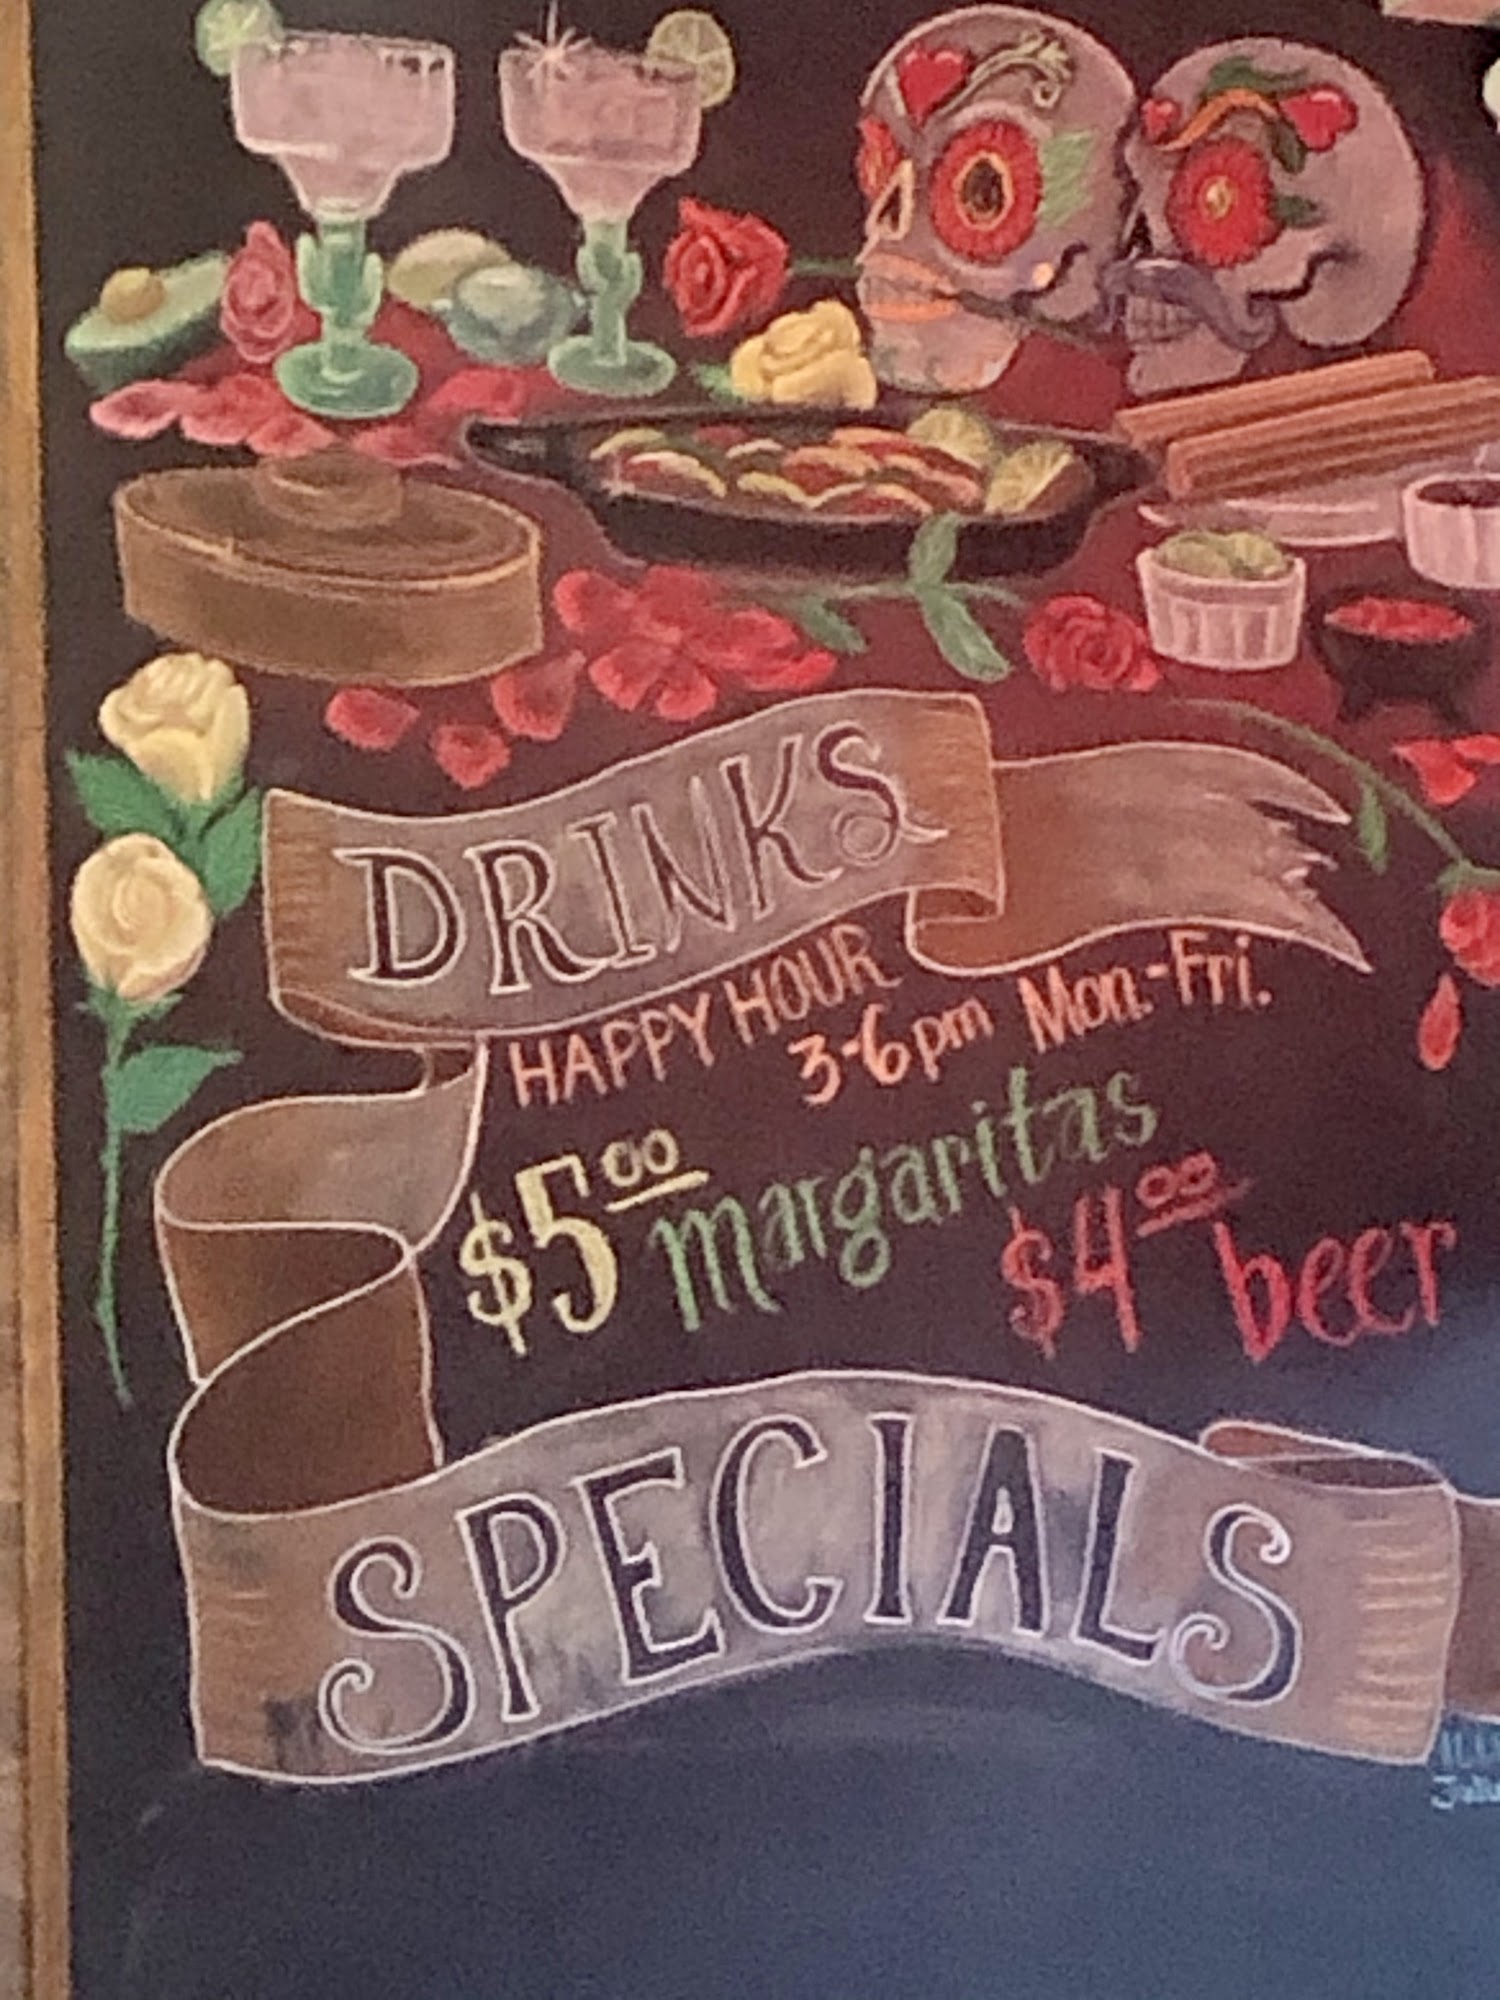 DRINKS
HAPPY HOUR
3-6pm Mon.-Fri.
$5.00 margaritas
$4.00 beer
SPECIALS